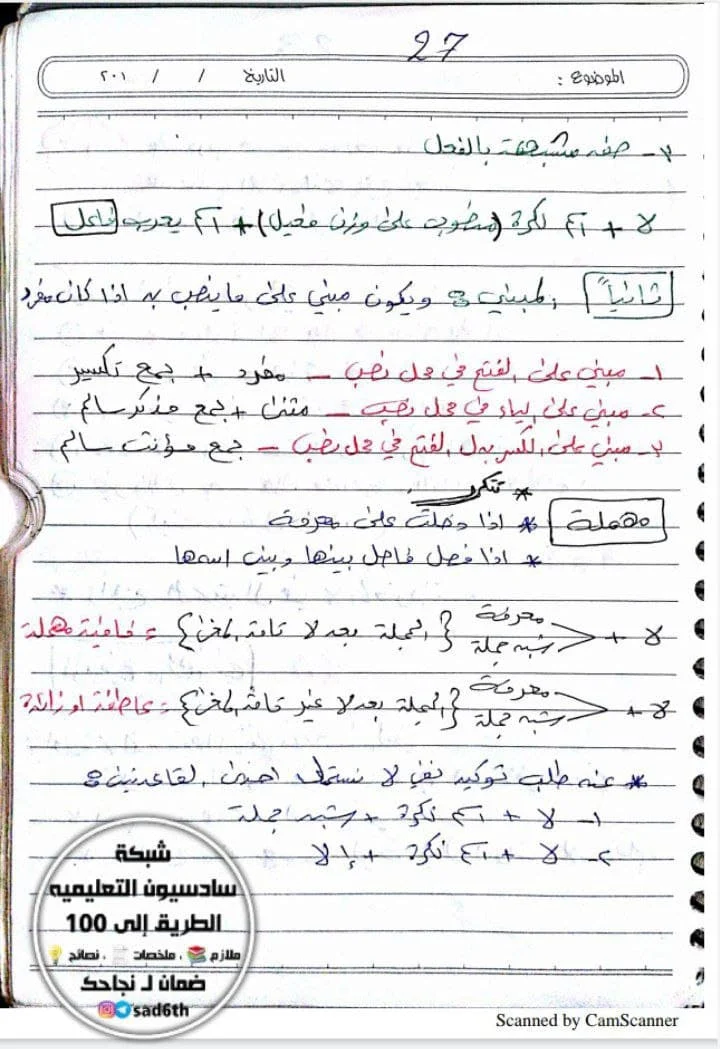 27
الموضوع :
التاريخ / / ٢٠١
٣- صفه مشبهة بالفعل
لا + اسم نكرة (منصوب على وزن فعيل) + اسم يعرب فاعل
ثانياً المبني : ويكون مبني على ما ينصب به اذا كان مفرد
١- مبني على الفتح في محل نصب - مفرد + جمع تكسير
٢- مبني على الياء في محل نصب - مثنى + جمع مذكر سالم
٣- مبني على الكسر بدل الفتح في محل نصب - جمع مؤنث سالم
* تتكرر
مهملة * اذا دخلت على معرفة
* اذا فصل فاصل بينها وبين اسمها
لا + معرفة شبه جملة { الجملة بعد لا تامة المعنى } = نافية مهملة
لا + معرفة شبه جملة { الجملة بعد لا غير تامة المعنى } = عاطفة او زائدة
* عند طلب توكيد نفي لا نستعمل احدى القاعدتين :
١- لا + اسم نكرة + شبه جملة
٢- لا + اسم نكرة + إلا
شبكة
سادسيون التعليميه
الطريق إلى 100
ملازم ، ملخصات ، نصائح
ضمان لـ نجاحك
sad6th
Scanned by CamScanner